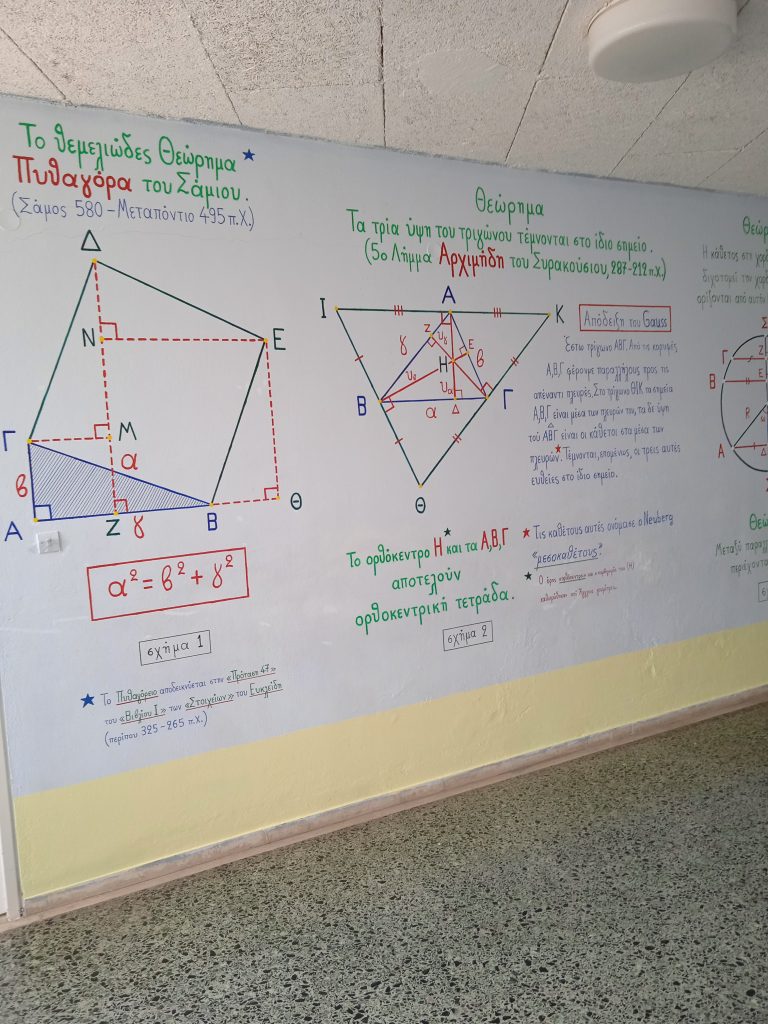 Το θεμελιώδες Θεώρημα
Πυθαγόρα του Σάμιου.
(Σάμος 580 - Μεταπόντιο 495 π.Χ.)
Δ
Ν
Ε
Γ
Μ
α
β
Α
Ζ
γ
Β
Θ
α² = β² + γ²
σχήμα 1
Το Πυθαγόρειο αποδεικνύεται στην «Πρόταση 47»
του «Βιβλίου Ι» των «Στοιχείων» του Ευκλείδη
(περίπου 325 - 265 π.Χ.)
Θεώρημα
Τα τρία ύψη του τριγώνου τέμνονται στο ίδιο σημείο.
(5ο Λήμμα Αρχιμήδη του Συρακούσιου, 287-212 π.χ.)
Ι
Α
Κ
Ζ
υγ
γ
Ε
Η
β
υβ
υα
Β
α
Δ
Γ
Θ
Το ορθόκεντρο Η και τα Α,Β,Γ
αποτελούν
ορθοκεντρική τετράδα.
σχήμα 2
Απόδειξη του Gauss
Έστω τρίγωνο ΑΒΓ. Από τις κορυφές
Α,Β,Γ φέρουμε παραλλήλους προς τις
απέναντι πλευρές. Στο τρίγωνο ΘΙΚ τα σημεία
Α,Β,Γ είναι μέσα των πλευρών του, τα δε ύψη
του ΑΒΓ είναι οι κάθετοι στα μέσα των
πλευρών. Τέμνονται, επομένως, οι τρεις αυτές
ευθείες στο ίδιο σημείο.
Τις καθέτους αυτές ονόμασε ο Neuberg
«μεσοκαθέτους».
Ο όρος
Θεώρ
Η κάθετος στη χορ
διχοτομεί την χορ
ορίζονται από αυτήν
Σ
Γ
Ζ
Β
Ε
Ρ
Α
Δ
Θεώ
Μεταξύ παραλλ
περιέχοντα
σχ